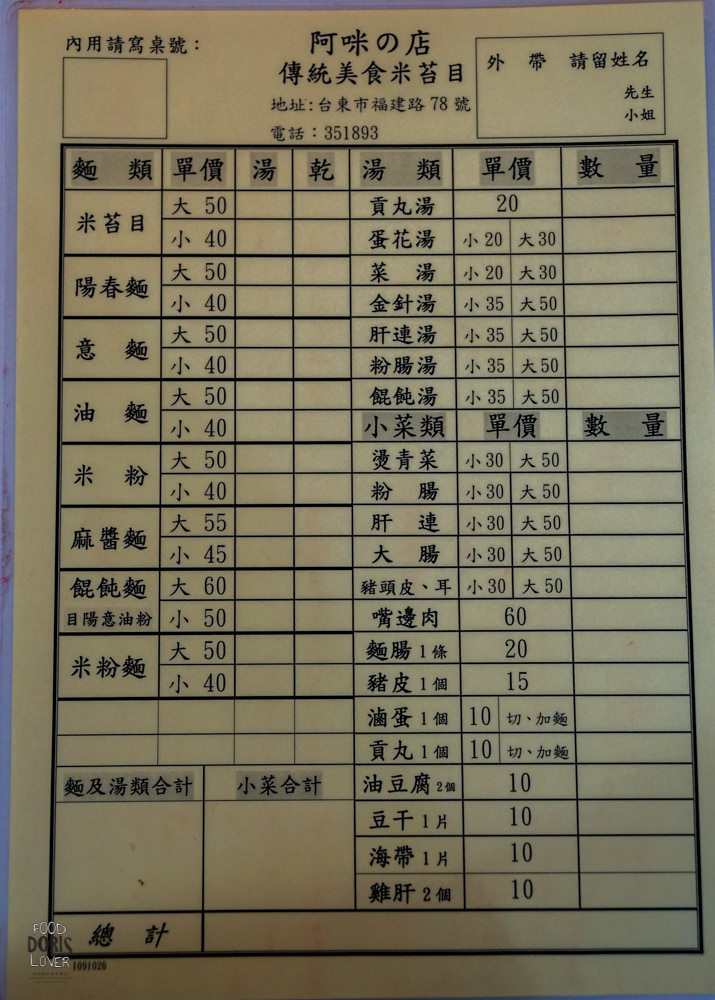 內用請寫桌號：
阿咪の店
傳統美食米苔目
地址:台東市福建路 78 號
電話：351893
外 帶 請留姓名
先生
小姐
麵 類 單價 湯 乾
米苔目 大 50
小 40
陽春麵 大 50
小 40
意 麵 大 50
小 40
油 麵 大 50
小 40
米 粉 大 50
小 40
麻醬麵 大 55
小 45
餛飩麵 大 60
目陽意油粉 小 50
米粉麵 大 50
小 40
湯 類 單價 數 量
貢丸湯 20
蛋花湯 小 20 大 30
菜 湯 小 20 大 30
金針湯 小 35 大 50
肝連湯 小 35 大 50
粉腸湯 小 35 大 50
餛飩湯 小 35 大 50
小菜類 單價 數 量
燙青菜 小 30 大 50
粉 腸 小 30 大 50
肝 連 小 30 大 50
大 腸 小 30 大 50
豬頭皮、耳 小 30 大 50
嘴邊肉 60
麵腸 1 條 20
豬皮 1 個 15
滷蛋 1 個 10 切、加麵
貢丸 1 個 10 切、加麵
油豆腐 2個 10
豆干 1 片 10
海帶 1 片 10
雞肝 2 個 10
麵及湯類合計 小菜合計
總 計
1091026
FOOD
DORIS
LOVER